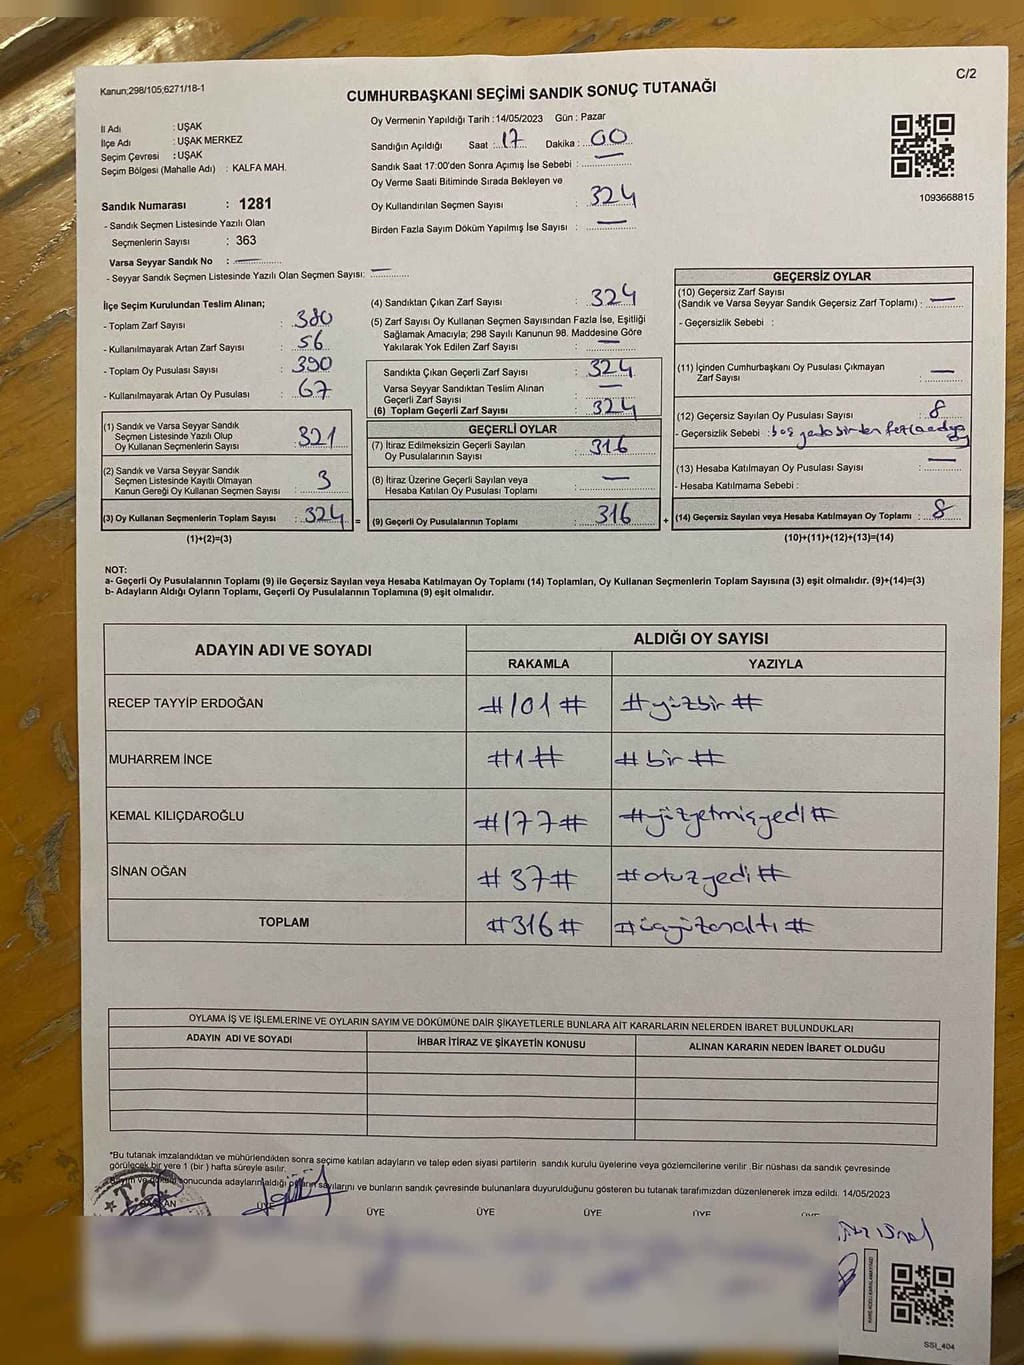 Kanun;298/105;6271/18-1
C/2
CUMHURBAŞKANI SEÇİMİ SANDIK SONUÇ TUTANAĞI
İl Adı : UŞAK
İlçe Adı : UŞAK MERKEZ
Seçim Çevresi : UŞAK
Seçim Bölgesi (Mahalle Adı) : KALFA MAH.
Sandık Numarası : 1281
- Sandık Seçmen Listesinde Yazılı Olan
Seçmenlerin Sayısı : 363
Varsa Seyyar Sandık No : —
- Seyyar Sandık Seçmen Listesinde Yazılı Olan Seçmen Sayısı: —
Oy Vermenin Yapıldığı Tarih : 14/05/2023 Gün : Pazar
Sandığın Açıldığı Saat : 17 Dakika : 00
Sandık Saat 17:00'den Sonra Açımış İse Sebebi : —
Oy Verme Saati Bitiminde Sırada Bekleyen ve
Oy Kullandırılan Seçmen Sayısı : 324
Birden Fazla Sayım Döküm Yapılmış İse Sayısı : —
1093668815
İlçe Seçim Kurulundan Teslim Alınan;
- Toplam Zarf Sayısı : 380
- Kullanılmayarak Artan Zarf Sayısı : 56
- Toplam Oy Pusulası Sayısı : 390
- Kullanılmayarak Artan Oy Pusulası : 67
(1) Sandık ve Varsa Seyyar Sandık
Seçmen Listesinde Yazılı Olup
Oy Kullanan Seçmenlerin Sayısı : 321
(2) Sandık ve Varsa Seyyar Sandık
Seçmen Listesinde Kayıtlı Olmayan
Kanun Gereği Oy Kullanan Seçmen Sayısı : 3
(3) Oy Kullanan Seçmenlerin Toplam Sayısı : 324 =
(1)+(2)=(3)
(4) Sandıktan Çıkan Zarf Sayısı : 324
(5) Zarf Sayısı Oy Kullanan Seçmen Sayısından Fazla İse, Eşitliği
Sağlamak Amacıyla; 298 Sayılı Kanunun 98. Maddesine Göre
Yakılarak Yok Edilen Zarf Sayısı : —
Sandıkta Çıkan Geçerli Zarf Sayısı : 324
Varsa Seyyar Sandıktan Teslim Alınan
Geçerli Zarf Sayısı : —
(6) Toplam Geçerli Zarf Sayısı : 324
GEÇERLİ OYLAR
(7) İtiraz Edilmeksizin Geçerli Sayılan
Oy Pusulalarının Sayısı : 316
(8) İtiraz Üzerine Geçerli Sayılan veya
Hesaba Katılan Oy Pusulası Toplamı : —
(9) Geçerli Oy Pusulalarının Toplamı : 316 +
GEÇERSİZ OYLAR
(10) Geçersiz Zarf Sayısı
(Sandık ve Varsa Seyyar Sandık Geçersiz Zarf Toplamı) : —
- Geçersizlik Sebebi :
(11) İçinden Cumhurbaşkanı Oy Pusulası Çıkmayan
Zarf Sayısı : —
(12) Geçersiz Sayılan Oy Pusulası Sayısı : 8
- Geçersizlik Sebebi : boş yada birden fazla
(13) Hesaba Katılmayan Oy Pusulası Sayısı : —
- Hesaba Katılmama Sebebi :
(14) Geçersiz Sayılan veya Hesaba Katılmayan Oy Toplamı : 8
(10)+(11)+(12)+(13)=(14)
NOT:
a- Geçerli Oy Pusulalarının Toplamı (9) ile Geçersiz Sayılan veya Hesaba Katılmayan Oy Toplamı (14) Toplamları, Oy Kullanan Seçmenlerin Toplam Sayısına (3) eşit olmalıdır. (9)+(14)=(3)
b- Adayların Aldığı Oyların Toplamı, Geçerli Oy Pusulalarının Toplamına (9) eşit olmalıdır.
ADAYIN ADI VE SOYADI ALDIĞI OY SAYISI
RAKAMLA YAZIYLA
RECEP TAYYİP ERDOĞAN #101# #yüzbir#
MUHARREM İNCE #1# #bir#
KEMAL KILIÇDAROĞLU #177# #yüzyetmişyedi#
SİNAN OĞAN #37# #otuzyedi#
TOPLAM #316# #üçyüzonaltı#
OYLAMA İŞ VE İŞLEMLERİNE VE OYLARIN SAYIM VE DÖKÜMÜNE DAİR ŞİKAYETLERLE BUNLARA AİT KARARLARIN NELERDEN İBARET BULUNDUKLARI
ADAYIN ADI VE SOYADI İHBAR İTİRAZ VE ŞİKAYETİN KONUSU ALINAN KARARIN NEDEN İBARET OLDUĞU
*Bu tutanak imzalandıktan ve mühürlendikten sonra seçime katılan adayların ve talep eden siyasi partilerin sandık kurulu üyelerine veya gözlemcilerine verilir .Bir nüshası da sandık çevresinde
görülecek bir yere 1 (bir ) hafta süreyle asılır.
sonucunda adayların aldığı oyların sayılarını ve bunların sandık çevresinde bulunanlara duyurulduğunu gösteren bu tutanak tarafımızdan düzenlenerek imza edildi. 14/05/2023
T.C.
BAŞKAN ÜYE ÜYE ÜYE ÜYE ÜYE
SSİ_404